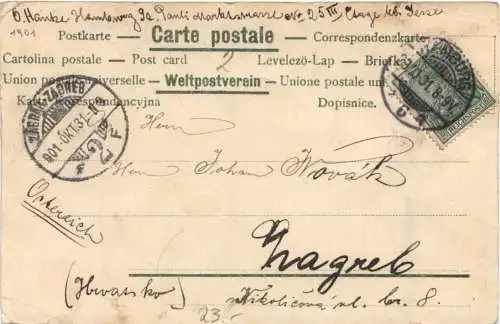 O. Hanke Hamburg 3a. Pauli Marktstrasse No 25 III Etage bei Jesse
1901
Postkarte — Carte postale — Correspondenzkarte
Cartolina postale — Post card — Levelező-Lap — Briefkaart
Union postale universelle — Weltpostverein — Unione postale
Karta korespondencyjna Dopisnice.
2
ZAGREB-ZÁGRÁB
901
F
HAMBURG
Herrn
Herrn Johan Novák
Östereich
Zagreb
(Hrvatsko)
Nikolićová ul. br. 8.
23.-